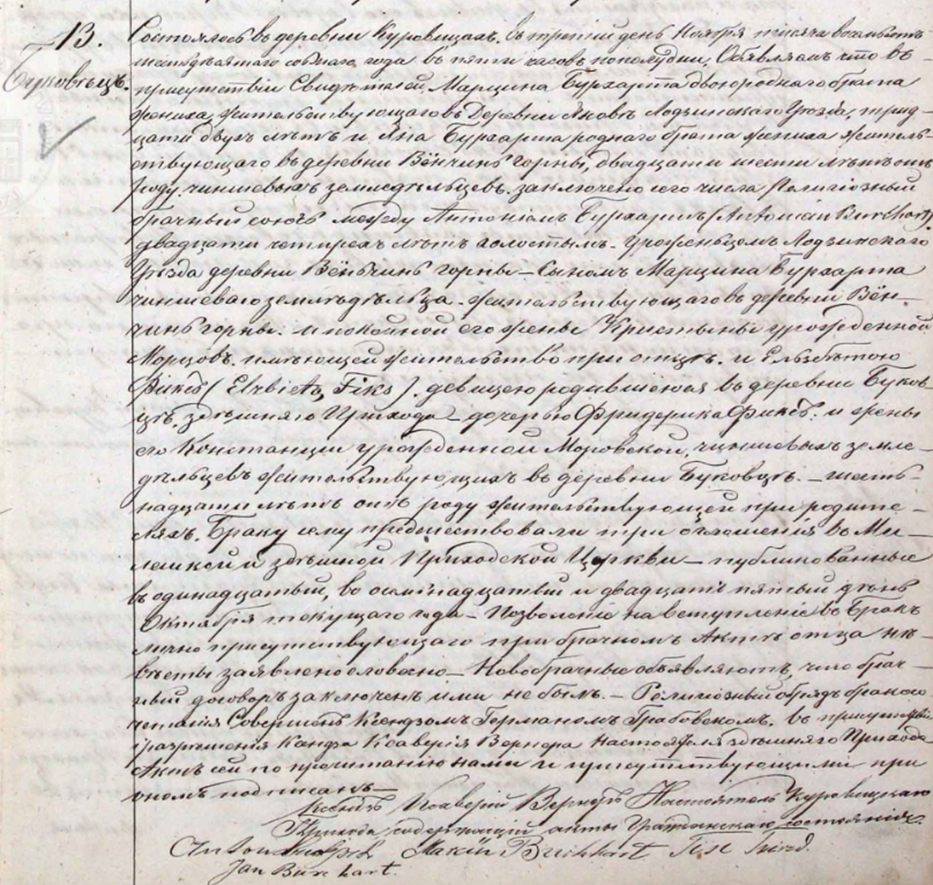 13.
Буковецъ.
Состоялось въ деревни Куровицахъ, въ третій день Ноября тысяча восемьсотъ
шестьдесятаго седьмаго года въ пяти часовъ пополудни. Объявляемъ что въ
присутствіи Свидѣтелей, Марцина Бурхарта двоюроднаго брата
жениха, жительствующаго въ Деревни Яновъ Лодзинскаго Уѣзда, трид-
цати двухъ лѣтъ и Яна Бурхарта роднаго брата жениха житель-
ствующаго въ деревни Вёнчинь Горны, двадцати шести лѣтъ отъ
роду, чиншевыхъ земледѣльцевъ, заключено сего числа Религіозный
брачный союзъ между Антоніомъ Бурхартъ (Antonim Burchart)
двадцати четырехъ лѣтъ холостымъ - уроженцемъ Лодзинскаго
Уѣзда деревни Вёнчинь горны - Сыномъ Марцина Бурхарта
чиншеваго земледѣльца - жительствующаго въ деревни Вён-
чинь горны. и покойной его жены Кристыны урожденной
имѣющей жительство при отцѣ. и Ельзбѣтою
Фиксъ (Elzbieta Fiks). девицею родившеюся въ деревни Буков-
цѣ. здѣшняго Прихода - дочерью Фридерика Фиксъ. и жены
его Констанціи урожденной Моровской, чиншевыхъ земле-
дѣльцевъ жительствующихъ въ деревни Буковцѣ. - шест-
надцати лѣтъ отъ роду жительствующей при родите-
ляхъ. Браку сему предшествовали три оглашенія въ Ми-
лешкой и здѣшной Приходской Церкви - публикованные
въ одинадцатый, во осмнадцатый и двадцать пятый день
Октября текущаго года - Позволеніе на вступленіе въ бракъ
лично присутствующаго при брачномъ Актѣ отца не-
вѣсты заявлено словесно - Новобрачные объявляютъ, что брач-
ный договоръ заключенъ ими не былъ. - Религіозный обрядъ бракосо-
четанія Совершенъ Ксендзомъ Германомъ Грабовскомъ. въ присутствіи
и разрешенія Ксаверія Вернера Настоятеля здѣшняго Прихода
Актъ сей по прочитанію нами и присутствующими при
ономъ подписанъ -
Ксендзъ Ксаверій Вернеръ Настоятель Куровицкаго
Прихода содержащій акты Гражданскаго состоянія.
Burchart
Jan Burchart.